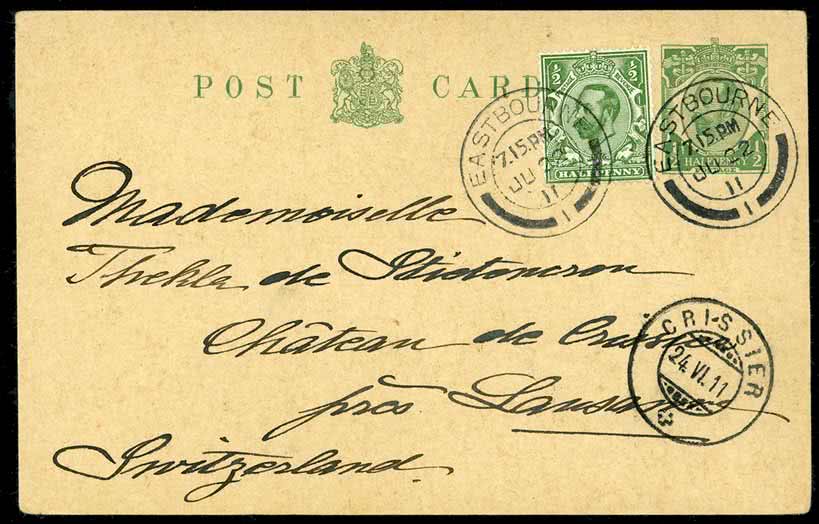 POST CARD
½ ½
HALFPENNY
½ ½
HALFPENNY
EASTBOURNE
7.15.PM
JU 22
11
1
EASTBOURNE
7.15.PM
JU 22
11
1
Mademoiselle
Thekla de
Château de
près Lausanne
Switzerland.
CRISSIER
24.VI.11